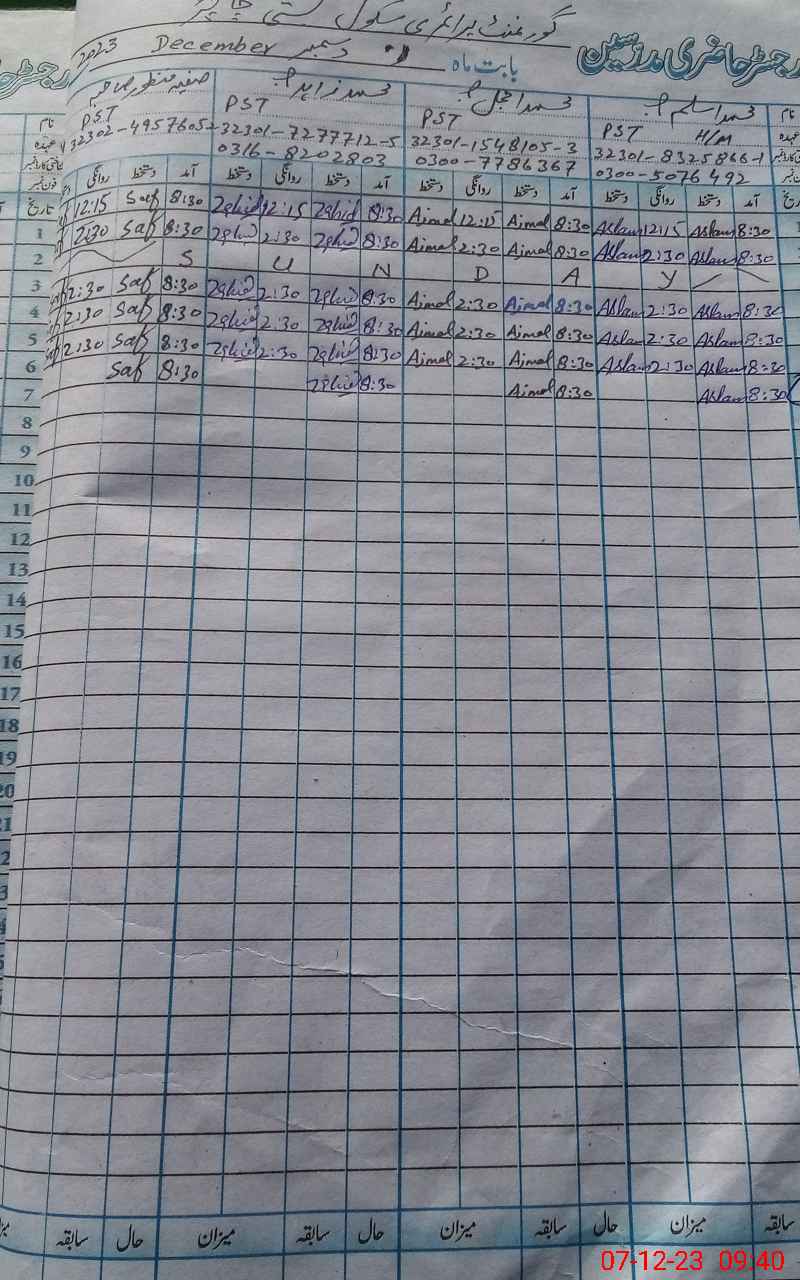 گورنمنٹ پرائمری سکول بستی
رجسٹر حاضری مدرسین بابت ماہ دسمبر December 2023
نام محمد اسلم محمد اجمل محمد زاہد صفیہ منظور صاحبہ
عہدہ PST H/M PST PST PST
32301-8325866-1 32301-1548105-3 32301-7277712-5 32302-4957605
0300-5076492 0300-7786367 0316-8202803
تاریخ آمد دستخط روانگی دستخط آمد دستخط روانگی دستخط آمد دستخط روانگی دستخط آمد دستخط روانگی
1 8:30 Aslam 12:15 Aslam 8:30 Ajmal 12:15 Ajmal 8:30 Zahid 12:15 Zahid 8:30 Saf 12:15
2 8:30 Aslam 2:30 Aslam 8:30 Ajmal 2:30 Ajmal 8:30 Zahid 2:30 Zahid 8:30 Saf 2:30
3 S U N D A Y
4 8:30 Aslam 2:30 Aslam 8:30 Ajmal 2:30 Ajmal 8:30 Zahid 2:30 Zahid 8:30 Saf 2:30
5 8:30 Aslam 2:30 Aslam 8:30 Ajmal 2:30 Ajmal 8:30 Zahid 2:30 Zahid 8:30 Saf 2:30
6 8:30 Aslam 2:30 Aslam 8:30 Ajmal 2:30 Ajmal 8:30 Zahid 2:30 Zahid 8:30 Saf 2:30
7 8:30 Aslam 8:30 Ajmal 8:30 Zahid 8:30 Saf
8
9
10
11
12
13
14
15
16
17
18
19
20
سابقہ میزان حال سابقہ میزان حال سابقہ میزان حال سابقہ
07-12-23 09:40